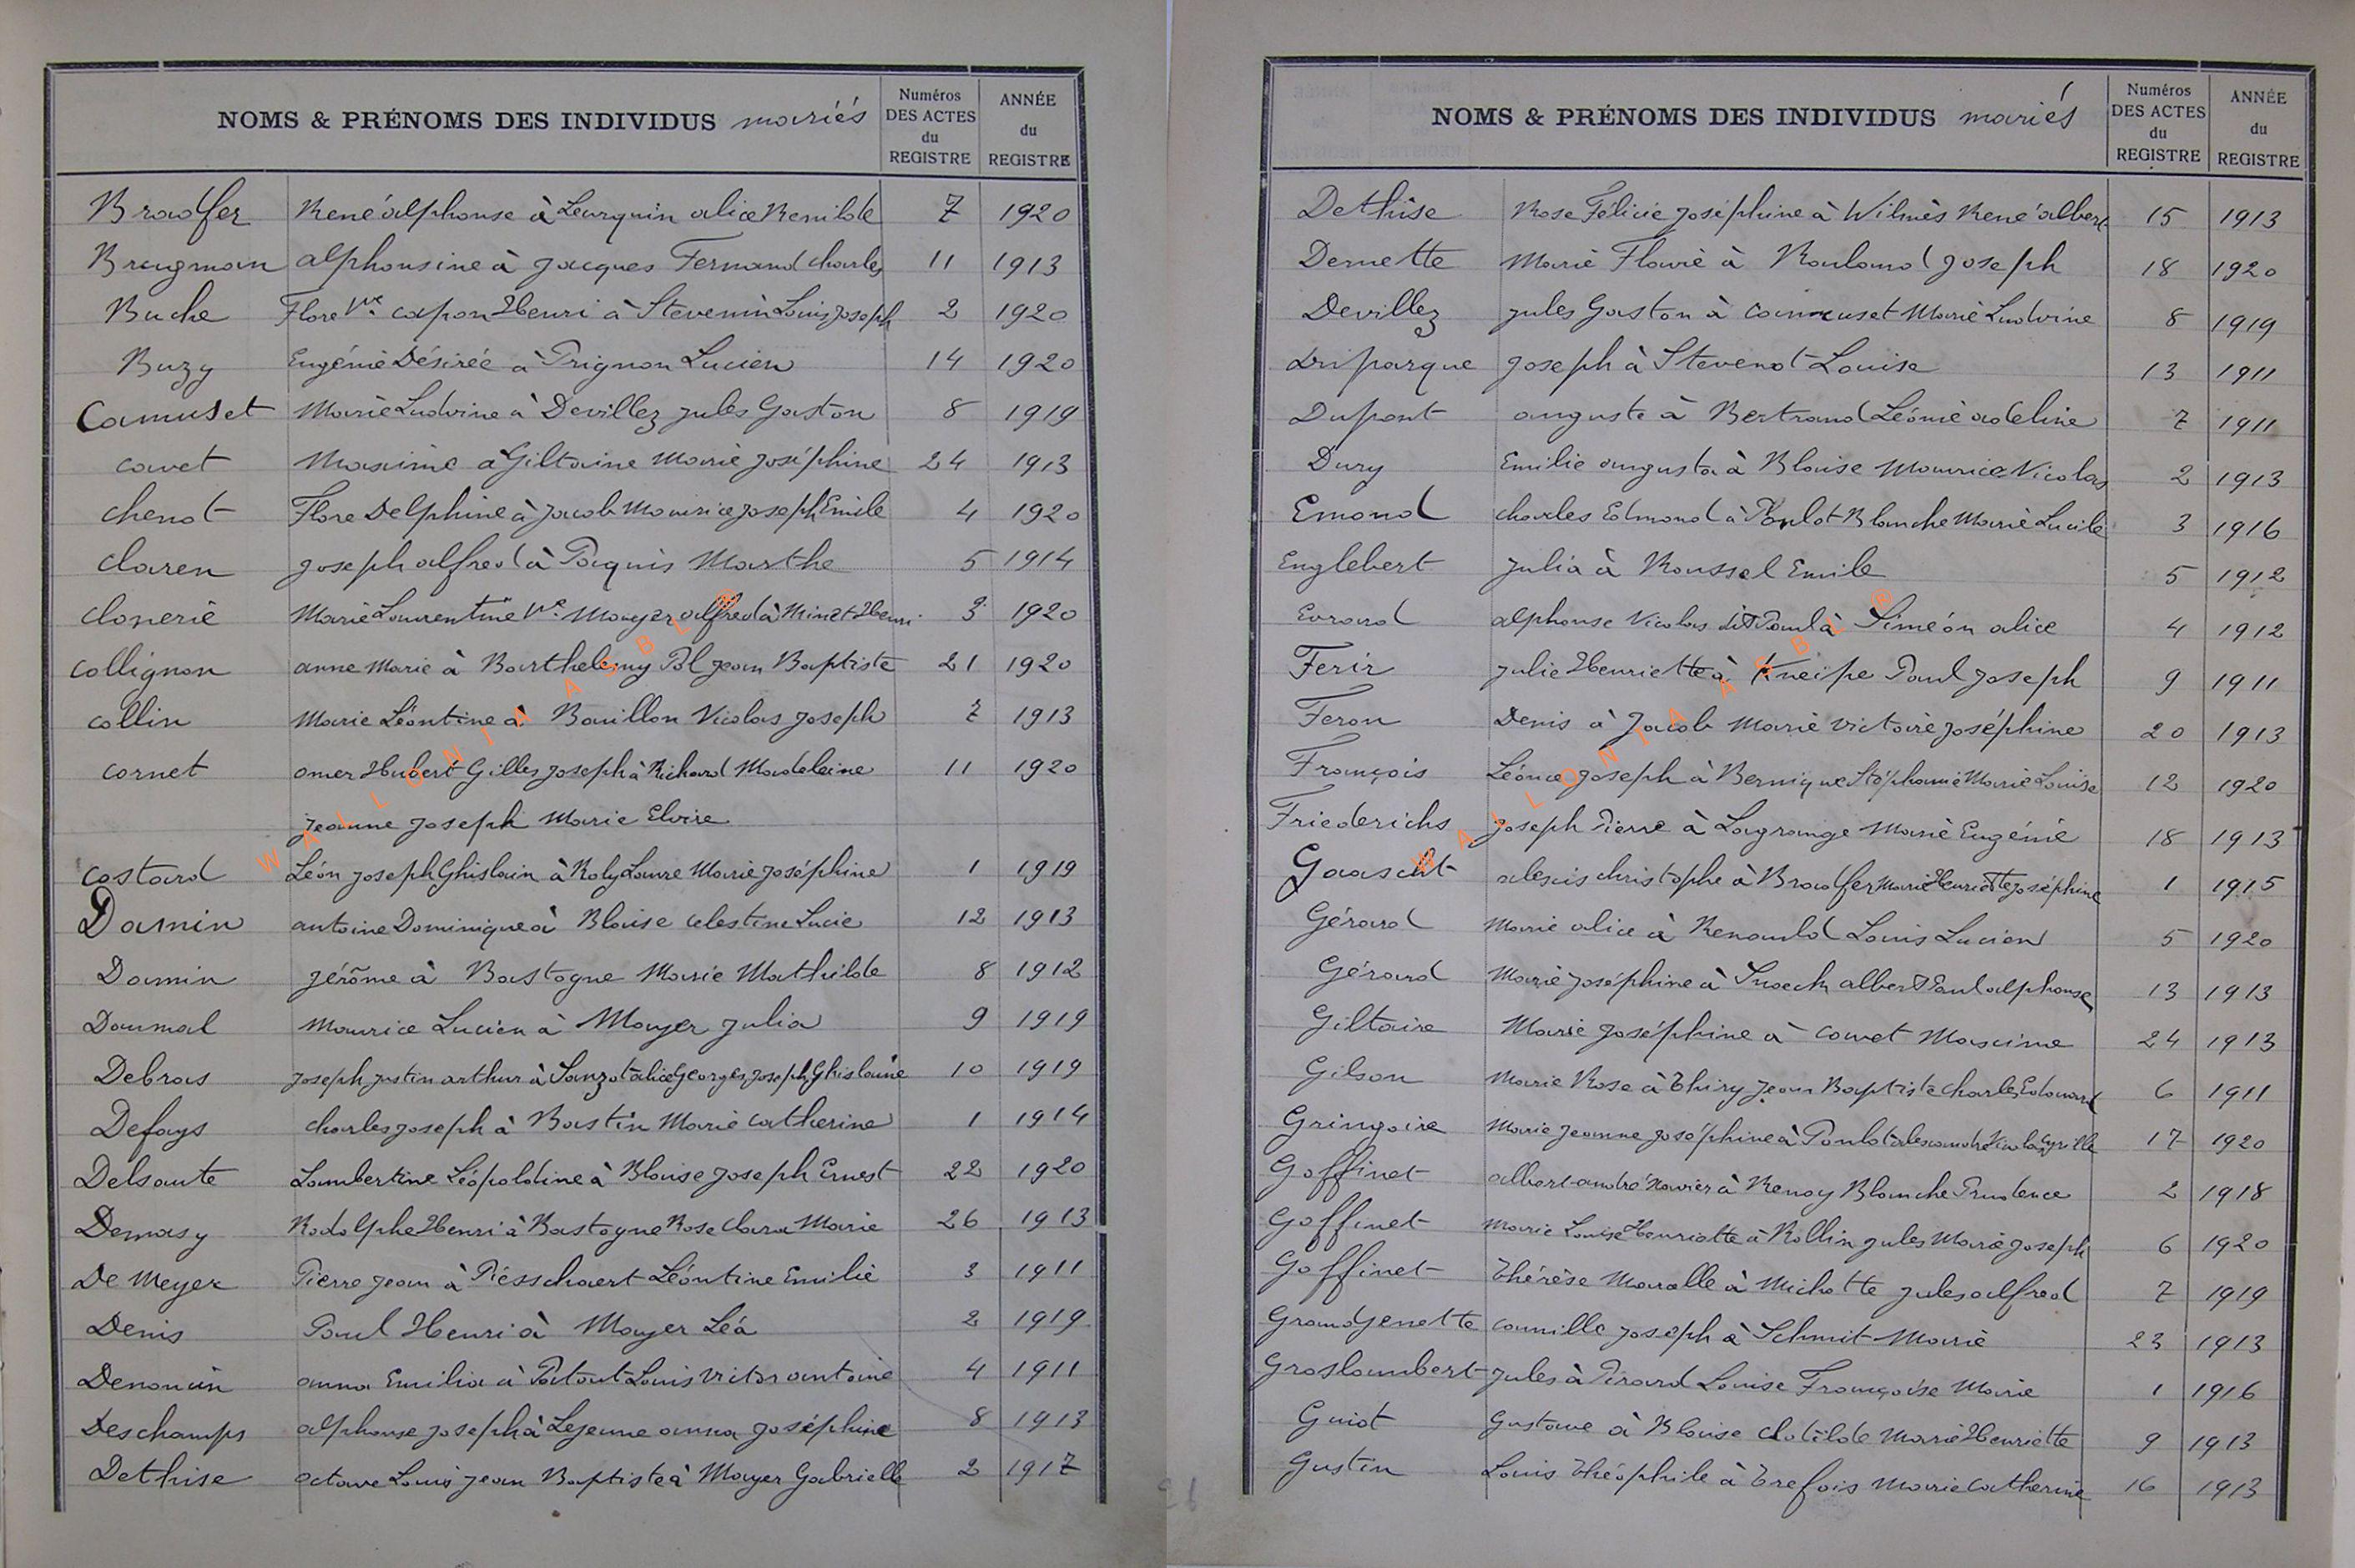 NOMS & PRÉNOMS DES INDIVIDUS mariés Numéros DES ACTES du REGISTRE ANNÉE du REGISTRE
Bradfer René alphonse à Leurquin alice Renilde 7 1920
Brugman alphonsine à Jacques Fernand charles 11 1913
Buche Flore Vve capon Henri à Stevenin Louis Joseph 2 1920
Buzy Eugénie Désirée à Prignon Lucien 14 1920
Camuset Marie Ludvine à Devillez jules Gaston 8 1919
cavet Maxime à Giltaire Marie Joséphine 24 1913
chenot Flore Delphine à Jacob Maurice Joseph Emile 4 1920
claren Joseph alfred à Paquis Marthe 5 1914
cloperie Marie Laurentine Vve Mayer alfred à Minet Henri 3 1920
collignon anne Marie à Barthelemy Pol Jean Baptiste 21 1920
collin Marie Léontine à Bouillon Nicolas Joseph 7 1913
cornet omer Hubert Gilles Joseph à Richard Madeleine 11 1920
Jeanne Joseph Marie Elvire
costard Léon Joseph Ghislain à Roly Laure Marie Joséphine 1 1919
Damin antoine Dominique à Blaise celestine Lucie 12 1913
Damin Jérôme à Bastogne Marie Mathilde 8 1912
Daumal Maurice Lucien à Mayer Julia 9 1919
Debras Joseph justin arthur à Sanzot alice Georges Joseph Ghislaine 10 1919
Defays charles Joseph à Bastin Marie catherine 1 1914
Delsaute Lambertine Léopoldine à Blaise Joseph Ernest 22 1920
Demasy Rodolphe Henri à Bastogne Rose clara Marie 26 1913
De Meyer Pierre Jean à Piesschaert Léontine Emilie 3 1911
Denis Paul Henri à Mayer Léa 2 1919
Denonin anna Emilia à Patout Louis victor antoine 4 1911
Deschamps alphonse Joseph à Lejeune anna Joséphine 8 1913
Dethise octave Louis Jean Baptiste à Mayer Gabrielle 2 1917
NOMS & PRÉNOMS DES INDIVIDUS mariés Numéros DES ACTES du REGISTRE ANNÉE du REGISTRE
Dethise Rose Félicie Joséphine à Wilmès René albert 15 1913
Devnette Marie Flavie à Rouland Joseph 18 1920
Devillez jules Gaston à camuset Marie Ludvine 8 1919
Driparque Joseph à Stevenot Louise 13 1911
Dupont auguste à Bertrand Léonie adeline 7 1911
Dury Emilie augusta à Blaise Maurice Nicolas 2 1913
Emond charles Edmond à Poulot Blanche Marie Lucile 3 1916
Englebert Julia à Roussel Emile 5 1912
Evrard alphonse Nicolas dit Paul à Siméon alice 4 1912
Ferir Julie Henriette à Kneipe Paul Joseph 9 1911
Feron Denis à Jacob Marie victoire Joséphine 20 1913
François Léonce Joseph à Bernique Stéphanie Marie Louise 12 1920
Friederichs Joseph Pierre à Lagrange Marie Eugénie 18 1913
Gaascht alexis christophe à Bradfer Marie Henriette Joséphine 1 1915
Gérard Marie alice à Renauld Louis Lucien 5 1920
Gérard Marie Joséphine à Snoeck albert Paul alphonse 13 1913
Giltaire Marie Joséphine à cavet Maxime 24 1913
Gilson Marie Rose à Thiry Jean Baptiste charles Edouard 6 1911
Gringoire Marie Jeanne Joséphine à Poulot alexandre Nicolas Cyrille 17 1920
Goffinet albert andré Xavier à Renoy Blanche Prudence 2 1918
Goffinet Marie Louise Henriette à Rollin jules Marie Joseph 6 1920
Goffinet Thérèse Marcelle à Michotte jules alfred 7 1919
Grandjenette camille Joseph à Schmit Marie 23 1913
Groslambert jules à Pirard Louise Françoise Marie 1 1916
Guiot Gustave à Blaise clotilde Marie Henriette 9 1913
Gustin Louis Théophile à Trefois Marie catherine 16 1913
WALLONIA ASBL ®
WALLONIA ASBL ®